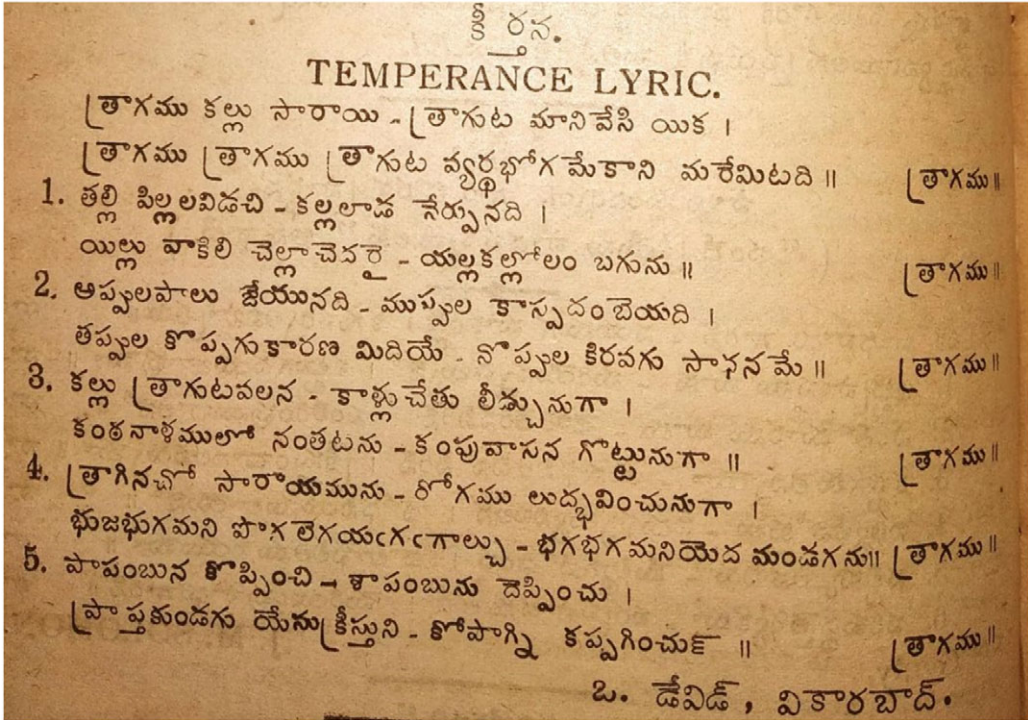 కీర్తన.
TEMPERANCE LYRIC.
త్రాగము కల్లు సారాయి - త్రాగుట మానివేసి యిక ।
త్రాగము త్రాగము త్రాగుట వ్యర్థభోగ మేకాని మరేమిటది ॥ త్రాగము ॥
1. తల్లి పిల్లలవిడచి - కల్లలాడ నేర్పునది ।
యిల్లు వాకిలి చెల్లాచెదరై - యల్లకల్లోలం బగును ॥ త్రాగము ॥
2. అప్పులపాలు జేయునది - ముప్పుల కాస్పదంబెయది ।
తప్పుల కొప్పగుకారణ మిదియే - నొప్పుల కిరవగు సాధనమే ॥ త్రాగము ॥
3. కల్లు త్రాగుటవలన - కాళ్లుచేతు లీడ్చునుగా ।
కంఠనాళములో నంతటను - కంపువాసన గొట్టునుగా ॥ త్రాగము ॥
4. త్రాగినచో సారాయమును - రోగము లుద్భవించునుగా ।
భుజభుగమని పొగలెగయఁగఁగాల్చు - భగభగమనియెద మండగను॥ త్రాగము ॥
5. పాపంబున కొప్పించి - శాపంబును దెప్పించు ।
ప్రాప్తకుండగు యేసుక్రీస్తుని - కోపాగ్ని కప్పగించుక్ ॥ త్రాగము ॥
ఒ. డేవిడ్, వికారబాద్.